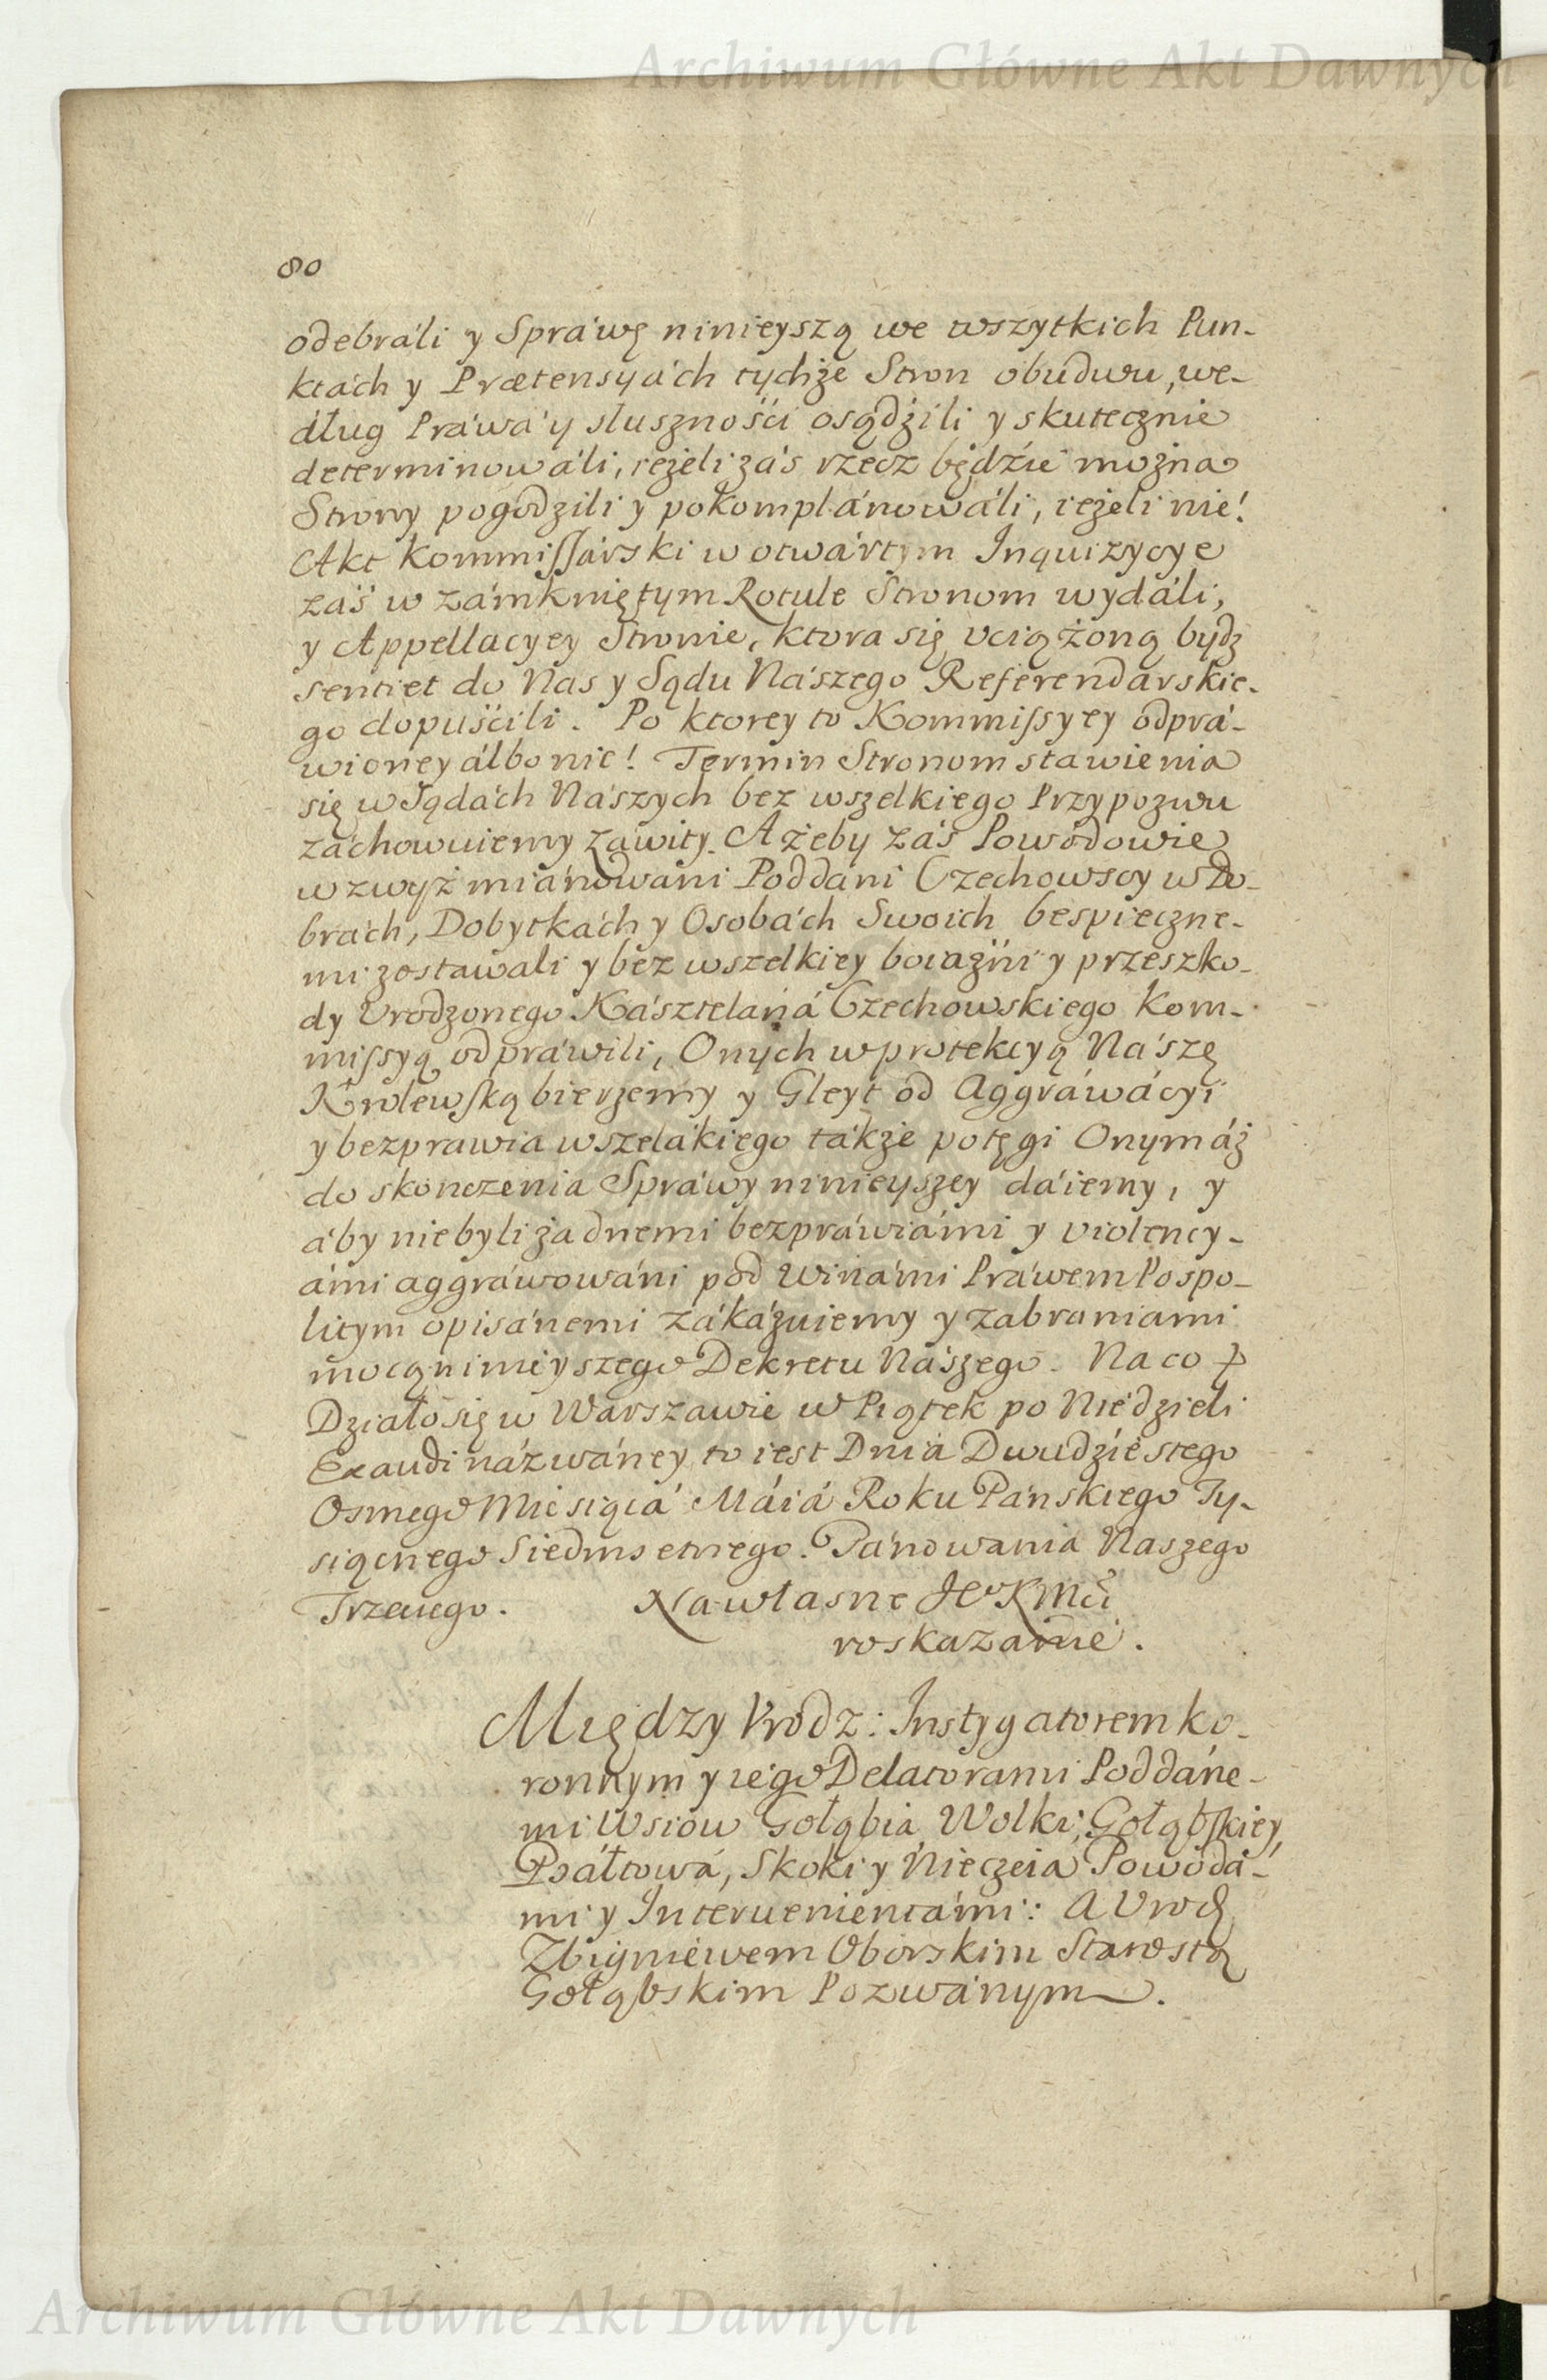 Archiwum Główne Akt Dawnych
80
odebráli y Spráwę ninieyszą we wszytkich Pun-
ktách y Prætensyách tychże Stron obudwu, we-
dług Práwá y sluszności osądźili y skutecznie
determinowáli, ieżeli zás rzecz będźie można
Strony pogodzili y pokomplánowáli, ieżeli nie!
Akt Kommissárski w otwártym Inquizycye
záś w zámkniętym Rotule Stronom wydáli,
y Appellacyey Stronie, ktora się vciążoną bydz
sentiet do Nas y Sądu Nászego Referendarskie-
go dopuścili. Po ktorey to Kommissyey odprá-
wioney álbo nie! Termin Stronom stawienia
się w Sądách Nászych bez wszelkiego Przypozwu
záchowuiemy zawity. Ażeby zás Powodowie
wzwyż miánowáni Poddáni Czechowscy w Do-
brách, Dobytkách y Osobách Swoich bespieczne-
mi zostawali y bez wszelkiey boiaźni y przeszko-
dy Vrodzonego Kásztelaná Czechowskiego Kom-
missyą odpráwili, Onych w protekcyą Nászę
Krolewską bierzemy y Gleyt od Aggráwácyi
y bezprawia wszelákiego tákże potęgi Onym áż
do skonczenia Spráwy ninieyszey dáiemy, y
áby niebyli żadnemi bezpráwiámi y violency-
ámi aggráwowáni pod Winámi Práwem Pospo-
litym opisánemi zákázuiemy y zabraniami
mocą ninieyszego Dekretu Nászego. Na co
Działo się w Warszawie w Piątek po Niedzieli
Exaudi názwáney to iest Dnia Dwudźiestego
Osmego Miesiąca Máiá Roku Panskiego Ty-
siącnego Siedmsetnego. Pánowania Naszego
Trzeciego. Na własne JeoKMci
roskazanie.
Między Vrodz: Instygatorem ko-
ronnym y iego Delatorami Poddáne-
mi Wsiow Gołąbia Wolki Gołąbskiey,
Psáłtowá, Skoki y Nieczeia Powodá-
mi y Interuenientámi: A Vrodz
Zbigniewem Oborskim Starostą
Gołąbskim Pozwánym.
Archiwum Główne Akt Dawnych